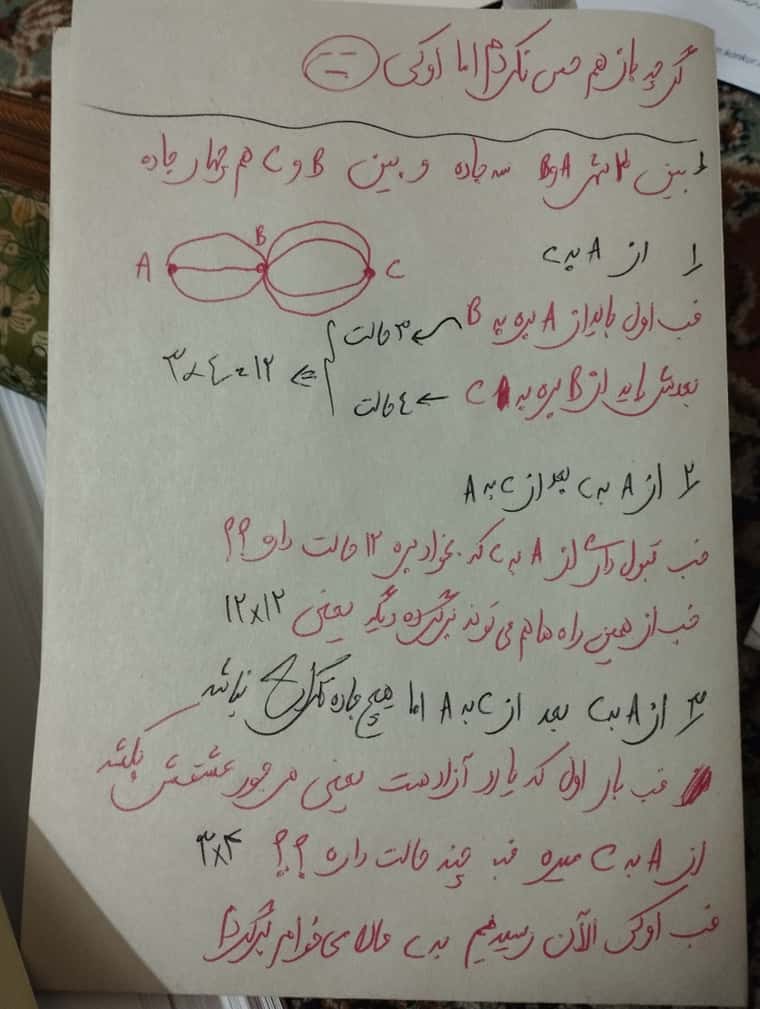 گرچه بازهم حس نکردم اما اوکی
۱ بین ۲ شهر A و B سه جاده و بین B و C هم چهار جاده
A B C
۱ از A به C
خب اول باید از A بره به B ← ۳ حالت
بعدش باید از B بره به C ← ٤ حالت
⇐ ۳×٤=۱۲
۲ از A به C بعد از C به A
خب قبول داری از A به C که بخواد بره ۱۲ حالت داره؟؟
خب از همین راه ها هم می تونه برگرده دیگه یعنی ۱۲×۱۲
۳ از A به C بعد از C به A اما هیچ جاده تکراری نباشه
خب بار اول که یارو آزاد هست یعنی هرجور عشقش بکشه
از A به C میره خب چند حالت داره؟؟ ۳×۴
خب اوکی الآن رسیدیم به C حالا می خوام برگردم